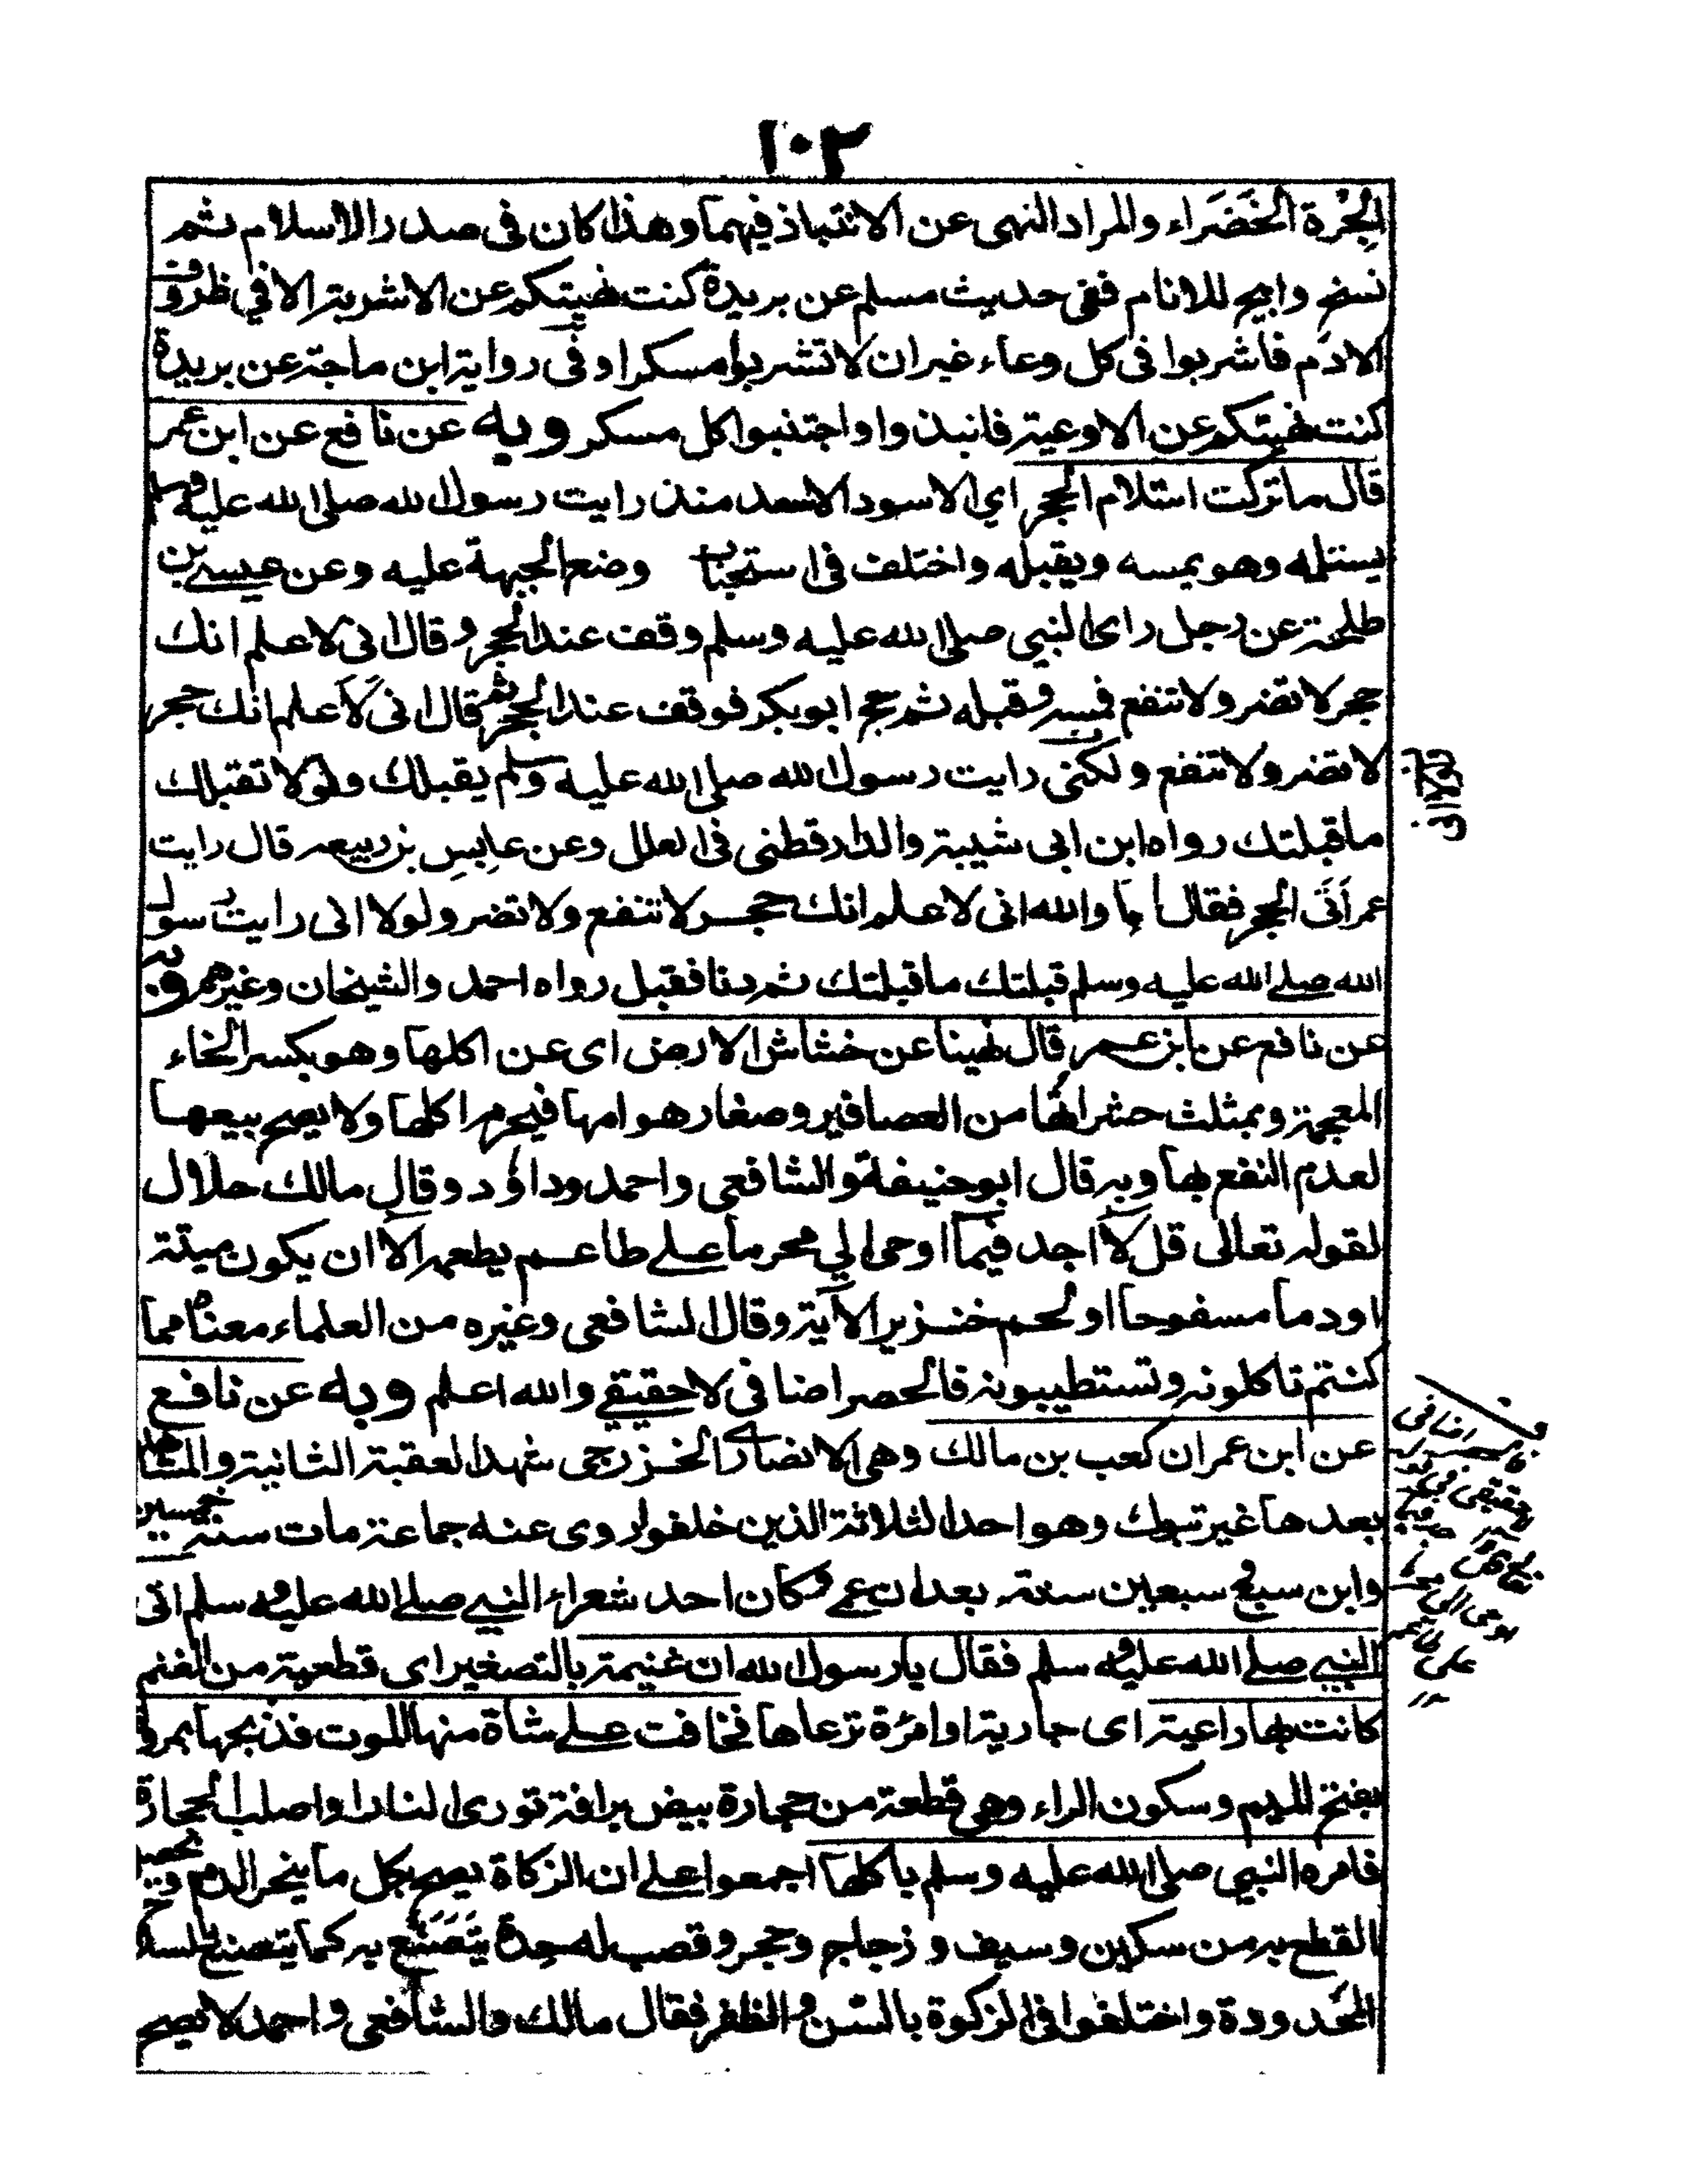 ١٠٢
الجُرة الخَضَراء والمراد النهى عن الانتباذ فيهما وهذا كان فى صدر الاسلام ثم
نسخ وابيح للانام ففى حديث مسلم عن بريدة كنت نهيتكم عن الاشربة الا في ظروف
الادم فاشربوا فى كل وعاء غير ان لا تشربوا مسكرا وفى رواية ابن ماجة عن بريدة
كنت نهيتكم عن الاوعية فانبذوا واجتنبوا كل مسكر وبه عن نافع عن ابن عمر
قال ما تركت استلام الحجر اي الاسود الاسعد منذ رايت رسول الله صلى الله عليه وسلم
يستلمه وهو يمسه ويقبله واختلف فى استحباب وضع الجبهة عليه وعن عيسى بن
طلحة عن رجل راى النبي صلى الله عليه وسلم وقف عند الحجر وقال انى لاعلم انك
حجر لا تضر ولا تنفع فمسه وقبله ثم حج ابوبكر فوقف عند الحجر ثم قال انى لاعلم انك حجر
لا تضر ولا تنفع ولكنى رايت رسول الله صلى الله عليه وسلم يقبلك ولولا تقبلك
ما قبلتك رواه ابن ابى شيبة والدارقطنى فى العلل وعن عابِسِ بن ربيعه قال رايت
عمر اَتَى الحجر فقال اما والله انى لاعلم انك حجر لا تنفع ولا تضر ولولا انى رايت رسول
الله صلى الله عليه وسلم قبلتك ما قبلتك ثم دنا فقبل رواه احمد والشيخان وغيرهم وبه
عن نافع عن ابن عمر قال نهينا عن خشاش الارض اى عن اكلها وهو بكسر الخاء
المعجمة وبمثلث حشراتها من العصافير وصغار هوامها فيحرم اكلها ولا يصح بيعها
لعدم النفع بها وبه قال ابوحنيفة والشافعى واحمد وداؤد وقال مالك حلال
لقوله تعالى قل لا اجد فيما اوحى الي محرما على طاعم يطعمه الا ان يكون ميتة
اودما مسفوحا اولحم خنزير الآية وقال الشافعى وغيره من العلماء معناه مما
كنتم تاكلونه وتستطيبونه فالحصر اضافى لا حقيقي والله اعلم وبه عن نافع
عن ابن عمر ان كعب بن مالك وهى الانصارى الخزرجى شهد العقبة الثانية والمشاهد
بعدها غير تبوك وهو احد الثلاثة الذين خلفوا روى عنه جماعة مات سنة خمسين
وابن سبع وسبعين سنة بعد ان عمى وكان احد شعراء النبي صلى الله عليه وسلم اتى
النبي صلى الله عليه وسلم فقال يا رسول الله ان غنيمة بالتصغير اى قطعية من الغنم
كانت لها راعية اى جارية او امرَة ترعاها فخافت على شاة منها الموت فذبحها بمروة
بفتح الميم وسكون الراء وهى قطعة من حجارة بيض براقة تورى النار او اصلب الحجارة
فامره النبي صلى الله عليه وسلم باكلها اجمعوا على ان الزكاة يصح بكل ما ينحر الدم ويحصل
القطع به من سكين وسيف وزجاج وحجر وقصب له حِدة يَتَصَنَّع به كما يتصنع بالسلاح
المحَدودة واختلفوا فى الزكوة بالسن والظفر فقال مالك والشافعى واحمد لا تصح
لولا انى